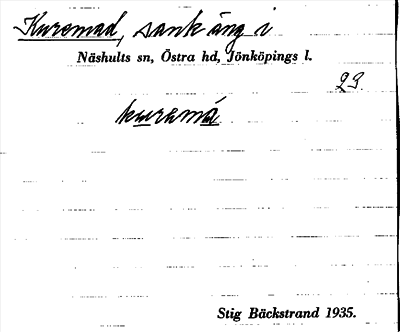 Kuremad, sank äng i
Näshults sn, Östra hd, Jönköpings l.
23.
kuremá
Stig Bäckstrand 1935.